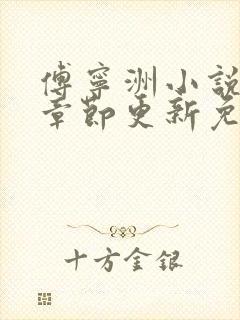 傅寧洲小說
章節更新免
十方金銀